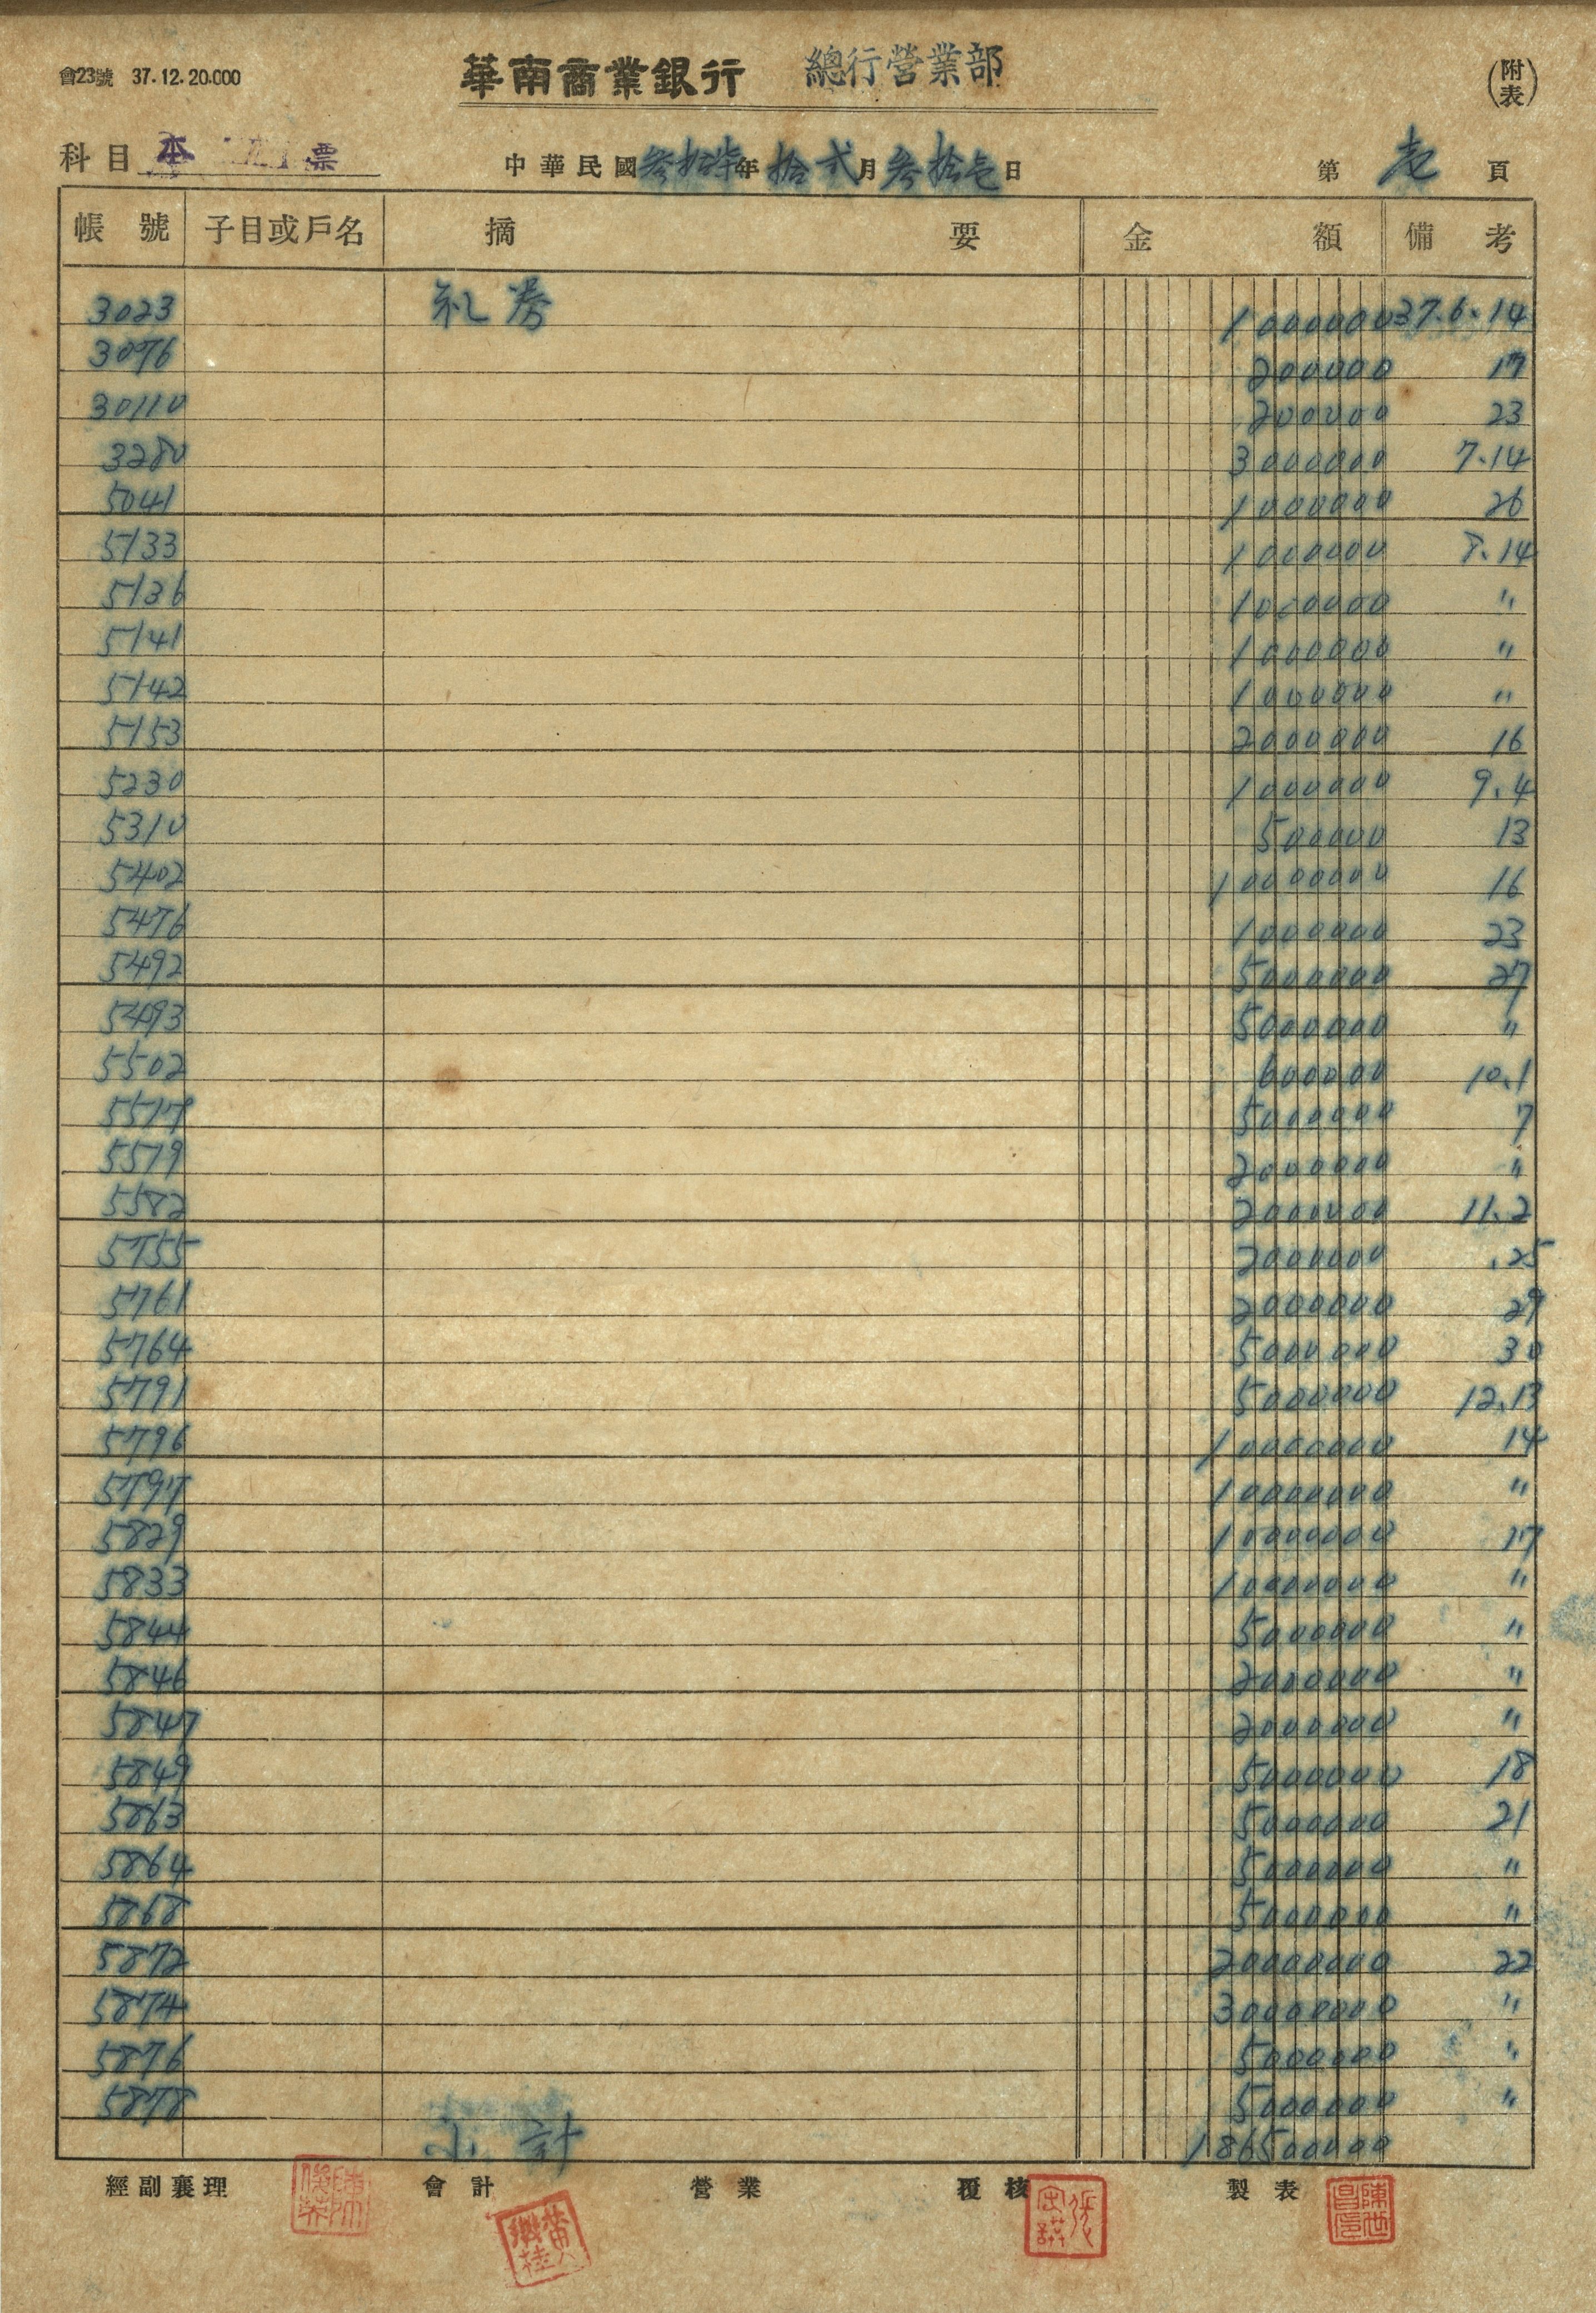 會23號 37.12.20.000 華南商業銀行 總行營業部 (附表)
科目 本 票 中華民國叁拾柒年拾貳月叁拾壱日 第壱頁
帳號 子目或戶名 摘要 金額 備考
3023 礼券 1000000 37.6.14
3076 200000 17
30110 200000 23
3280 3000000 7.14
5041 1000000 26
5133 1000000 8.14
5136 1000000 〃
5141 1000000 〃
5142 1000000 〃
5153 2000000 16
5230 1000000 9.4
5310 500000 13
5402 10000000 16
5476 1000000 23
5492 5000000 27
5493 5000000 〃
5502 600000 10.1
5517 5000000 7
5519 2000000 〃
5582 2000000 11.2
5755 2000000 .25
5761 2000000 29
5764 5000000 30
5791 5000000 12.13
5796 10000000 14
5797 10000000 〃
5829 10000000 17
5833 10000000 〃
5844 5000000 〃
5846 2000000 〃
5847 2000000 〃
5849 5000000 18
5863 5000000 21
5864 5000000 〃
5868 5000000 〃
5872 20000000 22
5874 30000000 〃
5876 5000000 〃
5878 5000000 〃
小計 186500000
經副襄理 會計 營業 覆核 製表
黃繼桂
陳世昌印